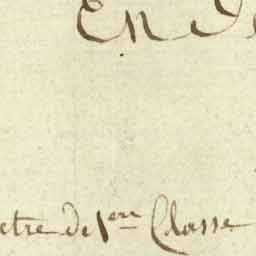 En
etre de 1ere Classe